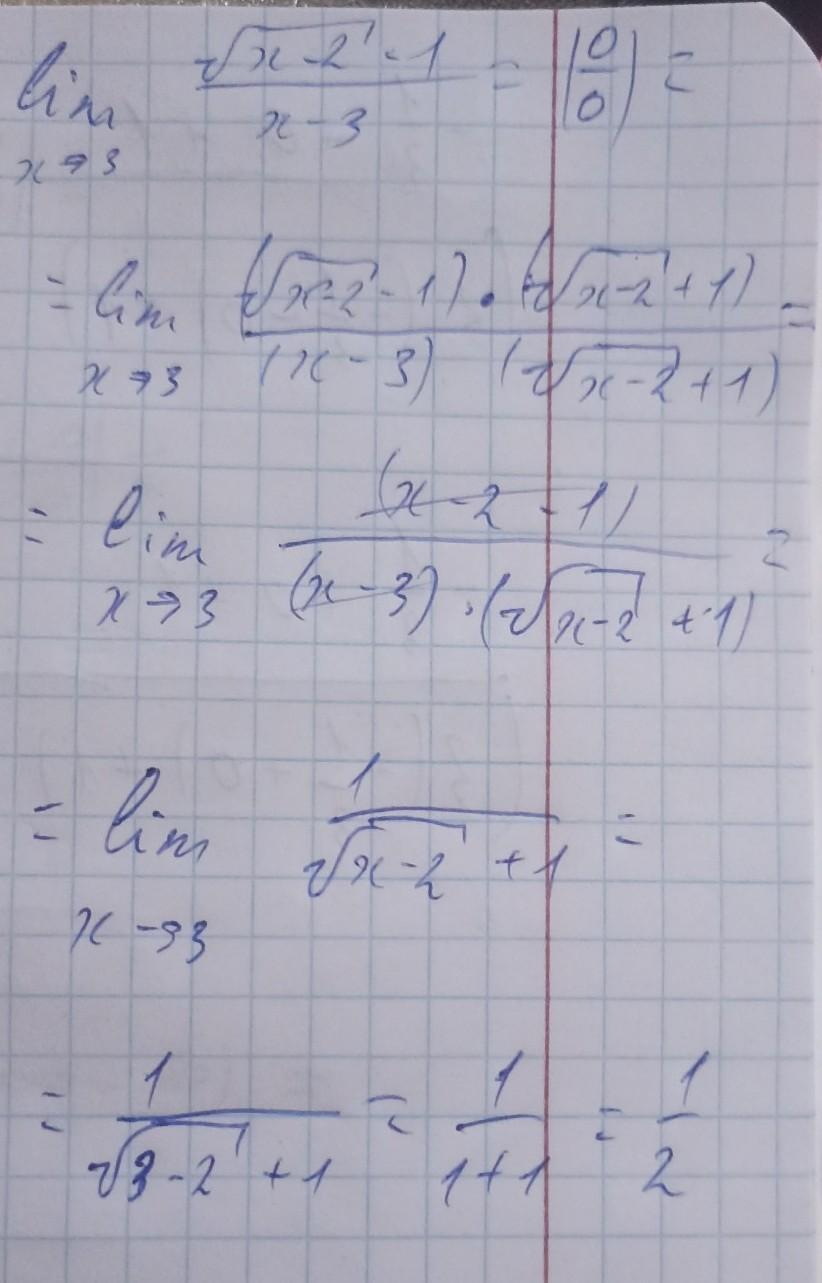 lim x→3 (√(x-2) - 1)/(x-3) = (0/0) =
= lim x→3 ((√(x-2) - 1) · (√(x-2) + 1))/((x-3) (√(x-2) + 1)) =
= lim x→3 (x-2-1)/((x-3) · (√(x-2) + 1)) =
= lim x→3 1/(√(x-2) + 1) =
= 1/(√(3-2) + 1) = 1/(1+1) = 1/2